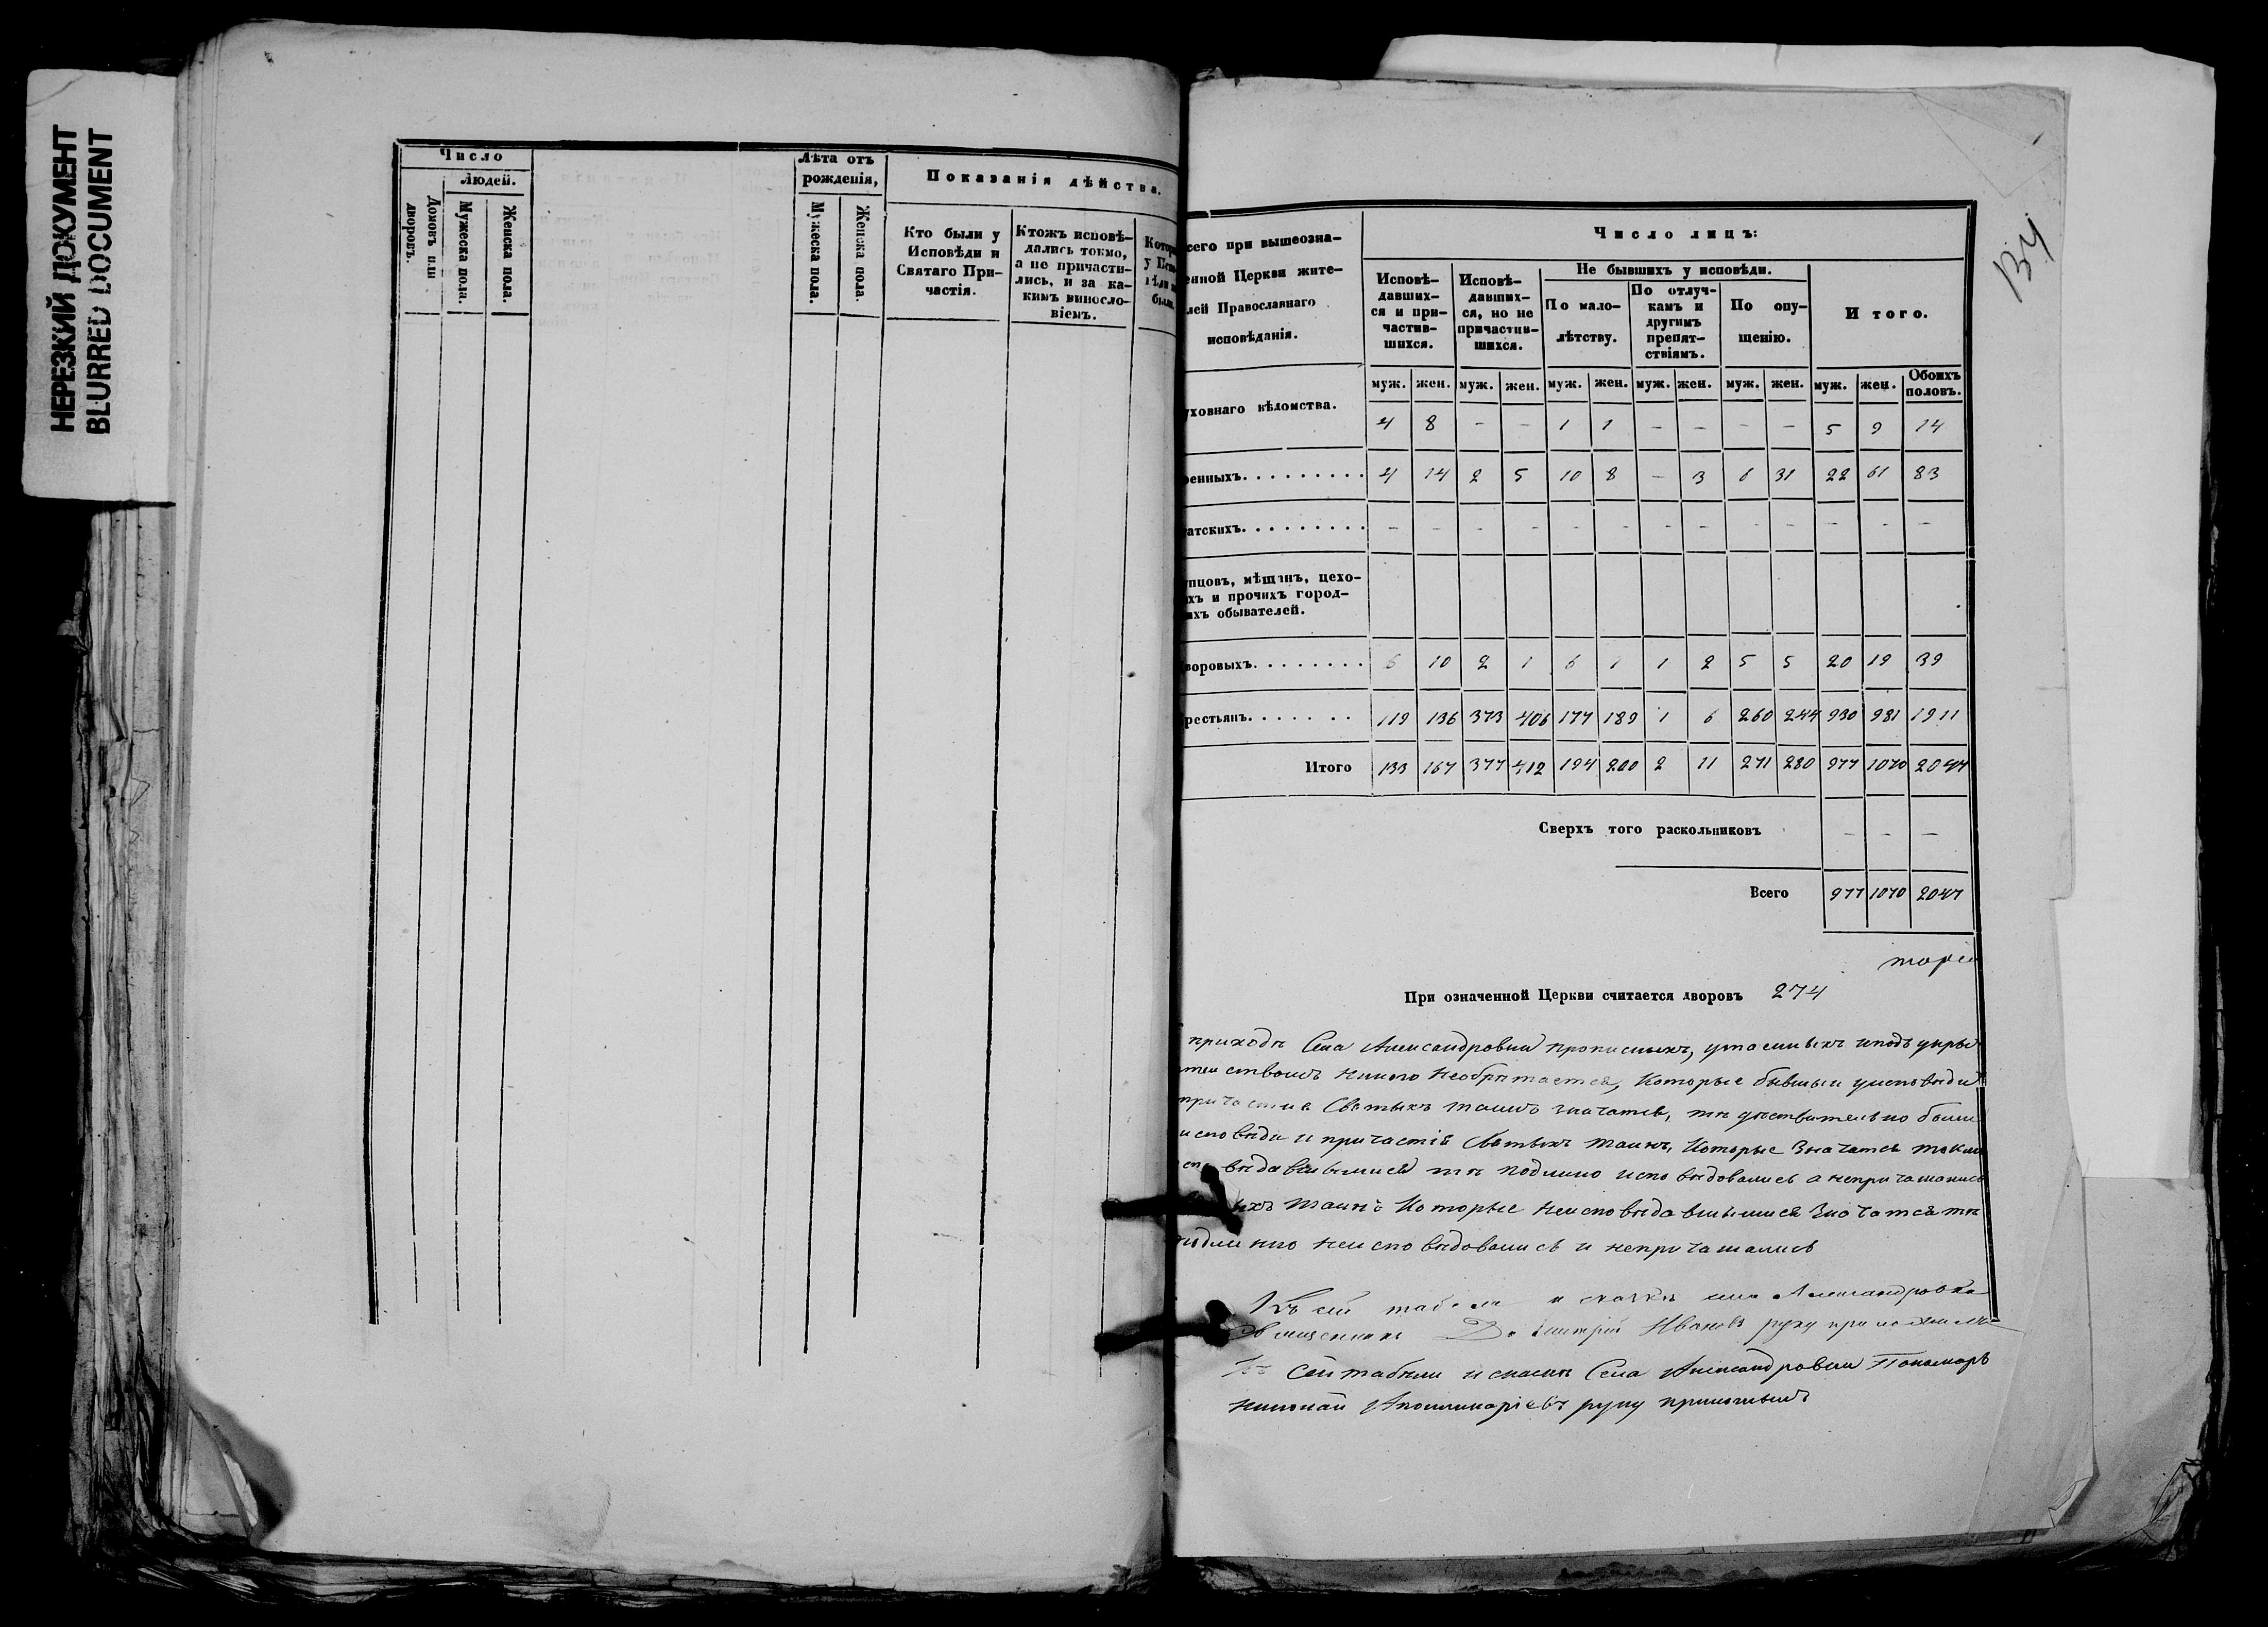 НЕРЕЗКИЙ ДОКУМЕНТ
BLURRED DOCUMENT
Число
людей.
Домовъ или дворовъ.
Мужеска пола.
Женска пола.
Лѣта отъ рожденія,
Мужеска пола.
Женска пола.
Показанія дѣйства.
Кто были у
Исповѣди и
Святаго При-
частія.
Ктожъ исповѣ-
дались токмо,
а не причасти-
лись, и за ка-
кимъ винсло-
віемъ.
были
сего при вышеозна-
енной Церкви жите-
лей Православнаго
исповѣданія.
Число лицъ:
Исповѣ-
давших-
ся и при-
частив-
шихся.
Исповѣ-
давших-
ся, но не
причастив-
шихся.
Не бывшихъ у исповѣди.
По мало-
лѣтству.
По отлуч-
камъ и
другимъ
препят-
ствіямъ.
По опу-
щенію.
Итого.
муж. жен. муж. жен. муж. жен. муж. жен. муж. жен. муж. жен. Обоихъ половъ.
уховнаго вѣдомства. 4 8 – – 1 1 – – – – 5 9 14
оенныхъ. 4 14 2 5 10 8 – 3 6 31 22 61 83
атскихъ. – – – – – – – – – – – – –
пцовъ, мѣщанъ, цехо-
хъ и прочихъ город-
ихъ обывателей.
воровыхъ. 6 10 2 1 6 1 1 2 5 5 20 19 39
рестьянъ. 119 136 373 406 177 189 1 6 260 244 930 981 1911
Итого 133 167 377 412 194 200 2 11 271 280 977 1070 2047
Сверхъ того раскольниковъ – – –
Всего 977 1070 2047
При означенной Церкви считается дворовъ 274
приходѣ Села Александровки прописныхъ, утаенныхъ иподъ укры
тельствомъ никого необрѣтается, Которые бывшыи уисповѣди
причастія Святыхъ таинъ значатся, тѣ дѣствительно были
исповѣди и причастія Святыхъ таинъ, Которые Значатся токмо
вѣдавшымися тѣ подлино исповѣдовались а непричащались
ихъ таинъ Которые неисповѣдавшымися Значатся тѣ
подлинно неисповѣдовались и непричащались
Къ сей табели и сказкѣ села Александровки
священникъ Димитрій Ивановъ руку приложилъ
Къ Сей табели и скаскѣ Села Александровки Пономарь
николай Аполлинаріевъ руку приложылъ